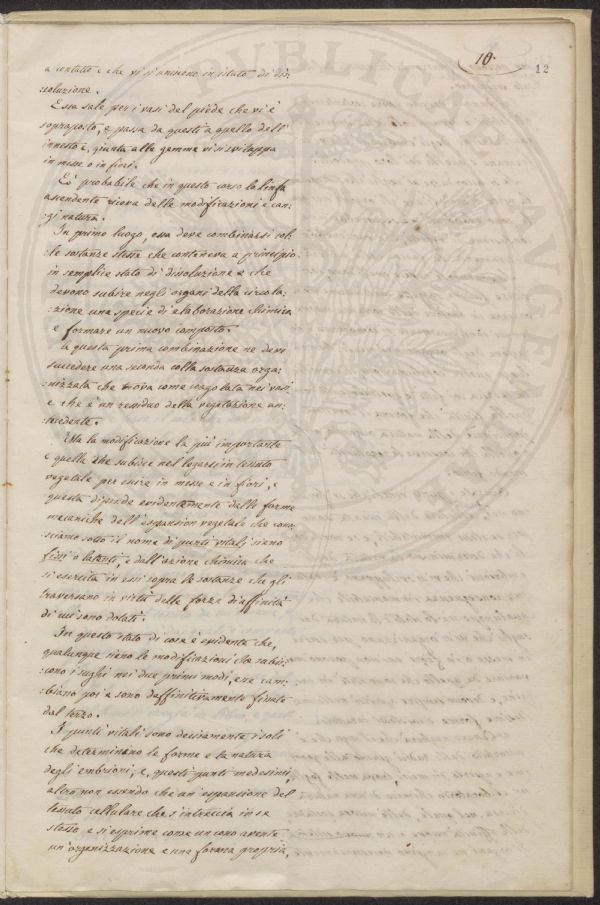 10.
12
a contatto e che vi si uniscono in istato di dis-
:soluzione.
Essa sale per i vasi del piede che vi è
soprapposto, e passa da questi a quello dell'
innesto e, giunta alle gemme vi si sviluppa
in messe o in fiori.
E' probabile che in questo corso la linfa
ascendente riceva delle modificazioni e can-
:gi natura.
In primo luogo, essa deve combinarsi col-
:le sostanze stesse che conteneva a principio
in semplice stato di dissoluzione e che
devono subire negli organi della circola:
:zione una specie di elaborazione chimica
e formare un nuovo composto.
a questa prima combinazione ne deve
succedere una seconda colla sostanza orga:
:nizzata che trova come coagolata nei vasi
e che è un residuo della vegetazione an:
:tecedente.
Ma la modificazione la più importante
è quella che subisce nel legarsi in tessuto
vegetale per escire in messe e in fiori, e
questa dipende evidentemente dalle forme
mecaniche dell'espansion vegetale che cono:
:sciamo sotto il nome di punti vitali sieno
fissi o latenti, e dall'azione chimica che
si esercita in essi sopra le sostanze che gli
traversano in virtù delle forze d'affinità
di cui sono dotati.
In questo stato di cose è evidente che,
qualunque sieno le modificazioni che subis:
:cono i sughi nei due primi modi, esse cam:
:biano poi e sono deffinitivamente fissate
dal terzo.
I punti vitali sono decisamente i soli
che determinano le forme e la natura
degli embrioni, e, questi punti medesimi,
altro non essendo che un'espansione del
tessuto cellulare che s'intreccia in se
stesso e si esprime come un cono avente
un'organizzazione e una forma propria,